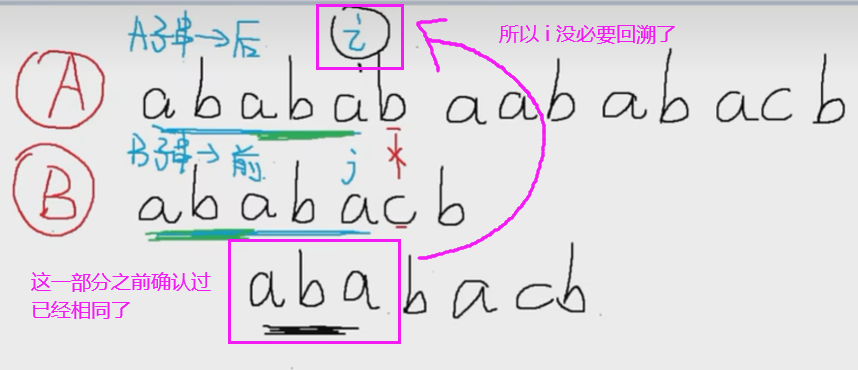 A子串→后
i
所以 i 没必要回溯了
A
a b a b a b a a b a b a c b
B子串→前
j
B
a b a b a c b
这一部分之前确认过
已经相同了
a b a b a c b